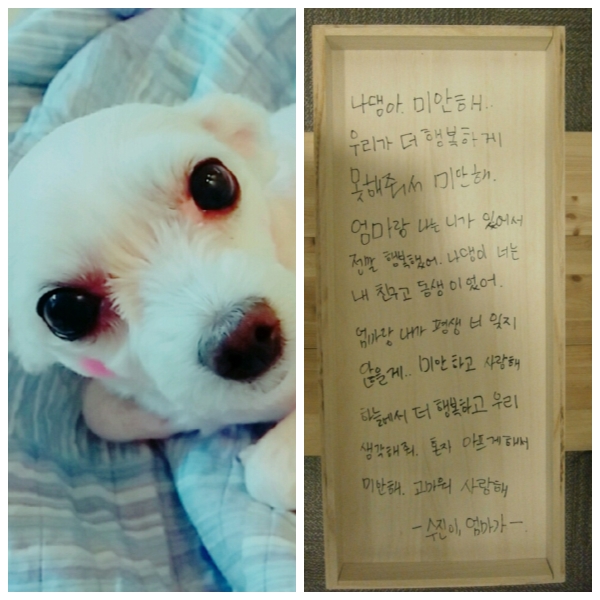 나댕아. 미안해..
우리가 더 행복하게
못해줘서 미안해.
엄마랑 나는 니가 있어서
정말 행복했어. 나댕이 너는
내 친구고 동생이었어.
엄마랑 내가 평생 너 잊지
않을게.. 미안하고 사랑해
하늘에서 더 행복하고 우리
생각해줘. 혼자 아프게해서
미안해. 고마워 사랑해
- 수진이, 엄마가 -